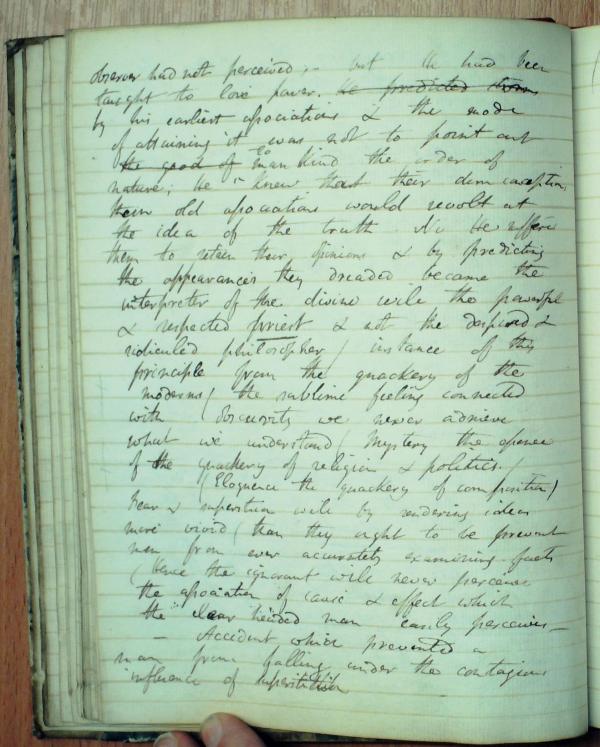 observer had not perceived; - but he had been
taught to love power. he predicted
by his earliest associations & the mode
of attaining it was not to point out
the good of to mankind the order of
nature; he knew that their dim conceptions,
their old associations would revolt at
the idea of the truth. No he suffered
them to retain their opinions & by predicting
the appearances they dreaded became the
interpreter of the divine will the powerful
& respected priest & not the despised &
ridiculed philosopher / instance of this
principle from the quackery of the
moderns ( the sublime feeling connected
with obscurity we never admire
what we understand ( Mystery the essence
of the quackery of religion & politics. /
( Eloquence the quackery of composition )
Fear & superstition will by rendering ideas
more vivid ( than they ought to be prevent
men from ever accurately examining facts
( hence the ignorant will never perceive
the association of cause & effect which
the clear headed man easily perceives -
- Accident which prevented a
man from falling under the contagious
influence of superstition